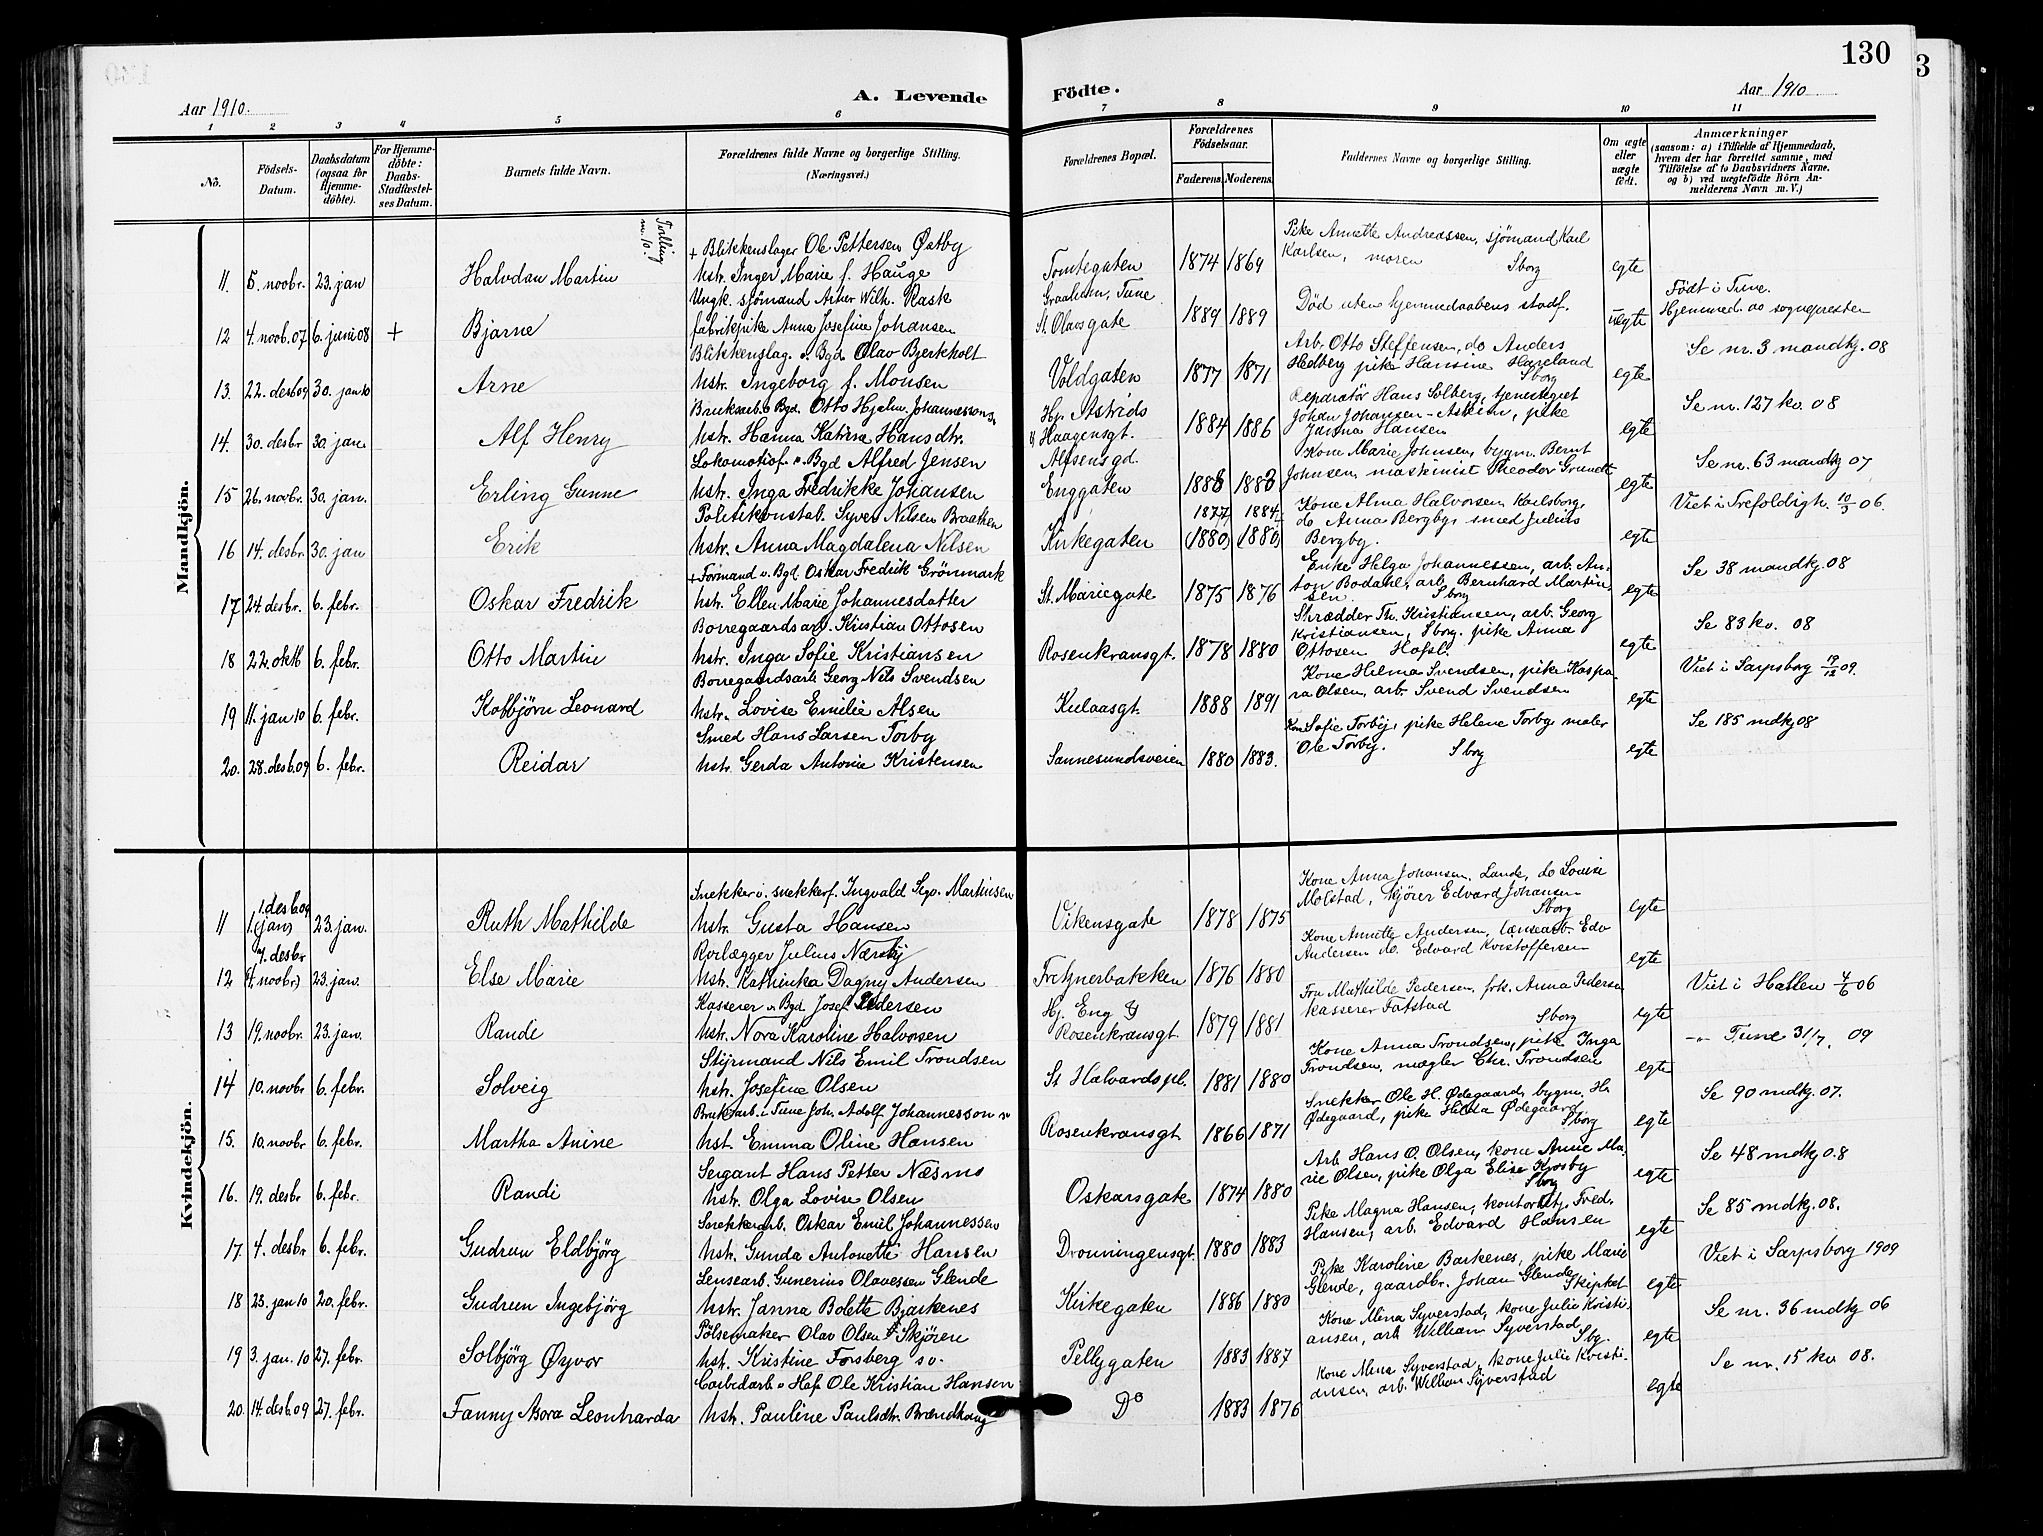 130
3
Aar 1910.
A. Levende
Födte.
Aar 1910
1 2 3 4 5 6 7 8 9 10 11
No.
Födsels-
Datum.
Daabsdatum
(ogsaa for
Hjemme-
döbte).
For Hjemme-
döbte:
Daabs-
Stadfæstel-
ses Datum.
Barnets fulde Navn.
Forældrenes fulde Navne og borgerlige Stilling.
(Næringsvei.)
Forældrenes Bopæl.
Forældrenes
Födselsaar.
Faderens. Moderens.
Faddernes Navne og borgerlige Stilling.
Om ægte
eller
uægte
födt.
Anmærkninger
(saasom: a) i Tilfælde af Hjemmedaab,
hvem der har forrettet samme, med
Tilföielse af to Daabsvidners Navne,
og b) ved uægtefödte Börn An-
melderens Navn m. V.)
Mandkjön.
Tvilling
m. 10.
+ Blikkenslager Ole Pettersen Østby
Pike Annette Andreassen, sjömand Karl
11. 5. novbr. 23. jan Halvdan Martin hstr. Inger Marie f. Hauge Tomtegaten 1874 1869 Karlsen, moren Sborg egte
Ungk. sjömand Artur Wilh. Rask Graalum, Tune Født i Tune.
12 4. novb. 07 6. juni 08 + Bjarne fabrikpike Anna Josefine Johansen St. Olavsgate 1889 1889 Död uten hjemmedaabens stadf. uegte Hjemmed. av sognepresten
Blikkenslag. o. Bgd. Olav Bjerkholt Arb. Otto Steffensen, do Anders Se nr. 3 mandkj. 08
13. 22. desb 09 30. jan 10 Arne hstr. Ingeborg f. Monsen Voldgaten 1877 1871 Hedberg pike Hansine Haveland Sborg egte
Bruksarb. o Bgd. Otto Hjalm. Johannesson Hj. Astrids Reparatör Hans Solberg, tjenestgut Se nr. 127 kv. 08
14. 30. desbr 30. jan. Alf Henry hstr. Hanna Katrisa Hansdtr. Haagensgt. 1884 1886 Johan Johansen - Askim, pike Janna Hansen egte
Lokomotivf. v. Bgd Alfred Jensen Alfsensgd. Kone Marie Johnsen, bygm. Bernt Se nr. 63 mandkj 07
15 26. novbr. 30. jan. Erling Gunne hstr. Inga Fredrikke Johansen Enggaten 1886 1883 Johnsen, maskinist Theodor Grundt egte
Politikonstab. Syver Nilsen Braathen 1877 1884 Kone Alma Halvorsen, Karlsborg, Viet i Trefoldigh. 10/3 06.
16 14. desbr. 30. jan Erik hstr. Anna Magdalena Nilsen Kirkegaten (1880) (1880) do Anna Bergby, smed Julius Bergby. egte
+ Formand v. Bgd. Oskar Fredrik Grönmark Enke Helga Johannessen, arb. An- Se 38 mandkj. 08
17 24 desbr. 6. febr. Oskar Fredrik hstr. Ellen Marie Johannesdatter St. Mariegate 1875 1876 ton Bodahl, arb. Bernhard Martinsen. Sborg egte
Borregaardsarb. Kristian Ottosen Skrædder Th. Kristiansen, arb. Georg Se 83 kv. 08
18 22. oktb 6. febr. Otto Martin hstr. Inga Sofie Kristiansen Rosenkransgt. 1878 1880 Kristiansen, Sborg. pike Anna Ottosen Hafsl. egte
Borregaardsarb Georg Nils Svendsen Kone Helma Svendsen, pike Kaspa- Viet i Sarpsborg 19/12 09.
19 11. jan 10 6. febr. Kolbjörn Leonard hstr. Lovise Emilie Alsen Kulaasgt. 1888 1891 ra Olsen, arb. Svend Svendsen egte
Smed Hans Larsen Torby Kone Sofie Torby, pike Helene Torby, maler Se 185 mdkj 08
20. 28. desb. 09 6. febr. Reidar hstr. Gerda Antonie Kristensen Sannesundsveien 1880 1883. Ole Torby. Sborg egte
Kvindekjön.
1. desb 09 Snekker v. snekkerf. Ingvald Sigv. Martinsen Kone Anna Johansen, Lande, do Lovise
11 1. (jan) 23. jan. Ruth Mathilde hstr. Gusta Hansen Vikensgate 1878 1875 Molstad, kjörer Edvard Johansen Sborg egte
7. desbr Rörlægger Julius Nærsby Kone Annette Andersen, lænsearb. Edv
12 (4. novbr.) 23. jan. Else Marie hstr. Kathinka Dagny Andersen Tretynerbakken 1876 1880 Andersen do. Edvard Kristoffersen egte
Kasserer v. Bgd. Josef Pedersen Hj. Eng & Fru Mathilde Pedersen, frk. Anna Pedersen Viet i Hallen 4/6 06
13 19. novbr. 23. jan. Randi hstr. Nora Karoline Halvorsen Rosenkransgt. 1879 1881 kasserer Fatstad Sborg egte
Styrmand Nils Emil Trondsen Kone Anna Trondsen, pike Inga -"- Tune 31/7. 09
14 10. novbr 6. febr. Solveig hstr. Josefine Olsen St Halvardspl. 1881 1880 Trondsen, mægler Chr. Trondsen egte
Bruksarb. i Tune Joh. Adolf Johannesson Snekker Ole H. Ødegaard, bygm. Hs Se 90 mdkj. 07.
15. 10. novbr 6. febr. Martha Anine hst. Emma Oline Hansen Rosenkransgt 1866 1871 Ødegaard, pike Hilda Ødegaard Sborg egte
Sergant Hans Petter Næsmo Arb. Hans O. Olsen, kone Anne Ma- Se 48 mdkj 08
16. 19. desbr 6. febr. Randi hstr. Olga Lovise Olsen Oskarsgate 1874 1880 rie Olsen, pike Olga Elise Krosby Sborg egte
Snekkerarb. Oskar Emil Johannessen Pike Magna Hansen, kontorist Fred. Se 85 mdkj. 08.
17. 4. desbr 6. febr. Gudrun Eldbjörg hstr. Gunda Antonette Hansen Dronningensgt. 1880 1883 Hansen, arb. Edvard Hansen egte
Lensearb. Gunerius Olavessen Glende Pike Karoline Barkenes, pike Marie Viet i Sarpsborg 1909
18 25. jan 10 20. febr. Gudrun Ingebjörg hstr. Janna Bolette Bjarkenes Kirkegaten 1886 1880 Glende, gaardbr. Johan Glende Skiptvet egte
Pölsemaker Olav Olsen Skjören Kone Mina Syverstad, kone Julie Kristi- Se nr. 36 mdkj 06
19 3. jan. 10 27. febr. Solbjörg Øyvor hst. Kristine Forsberg sv. Pellygaten 1883 1887 ansen, arb William Syverstad Sbg. egte
Carbidarb v Haf. Ole Kristian Hansen Kone Mena Syverstad, kone Julie Kristi- Se nr. 15 kv 08.
20. 14. desb. 09 27. febr. Fanny Asora Leonharda hstr. Pauline Paulsdtr. Brændhaug Do 1883 1876 ansen, arb. William Syverstad egte